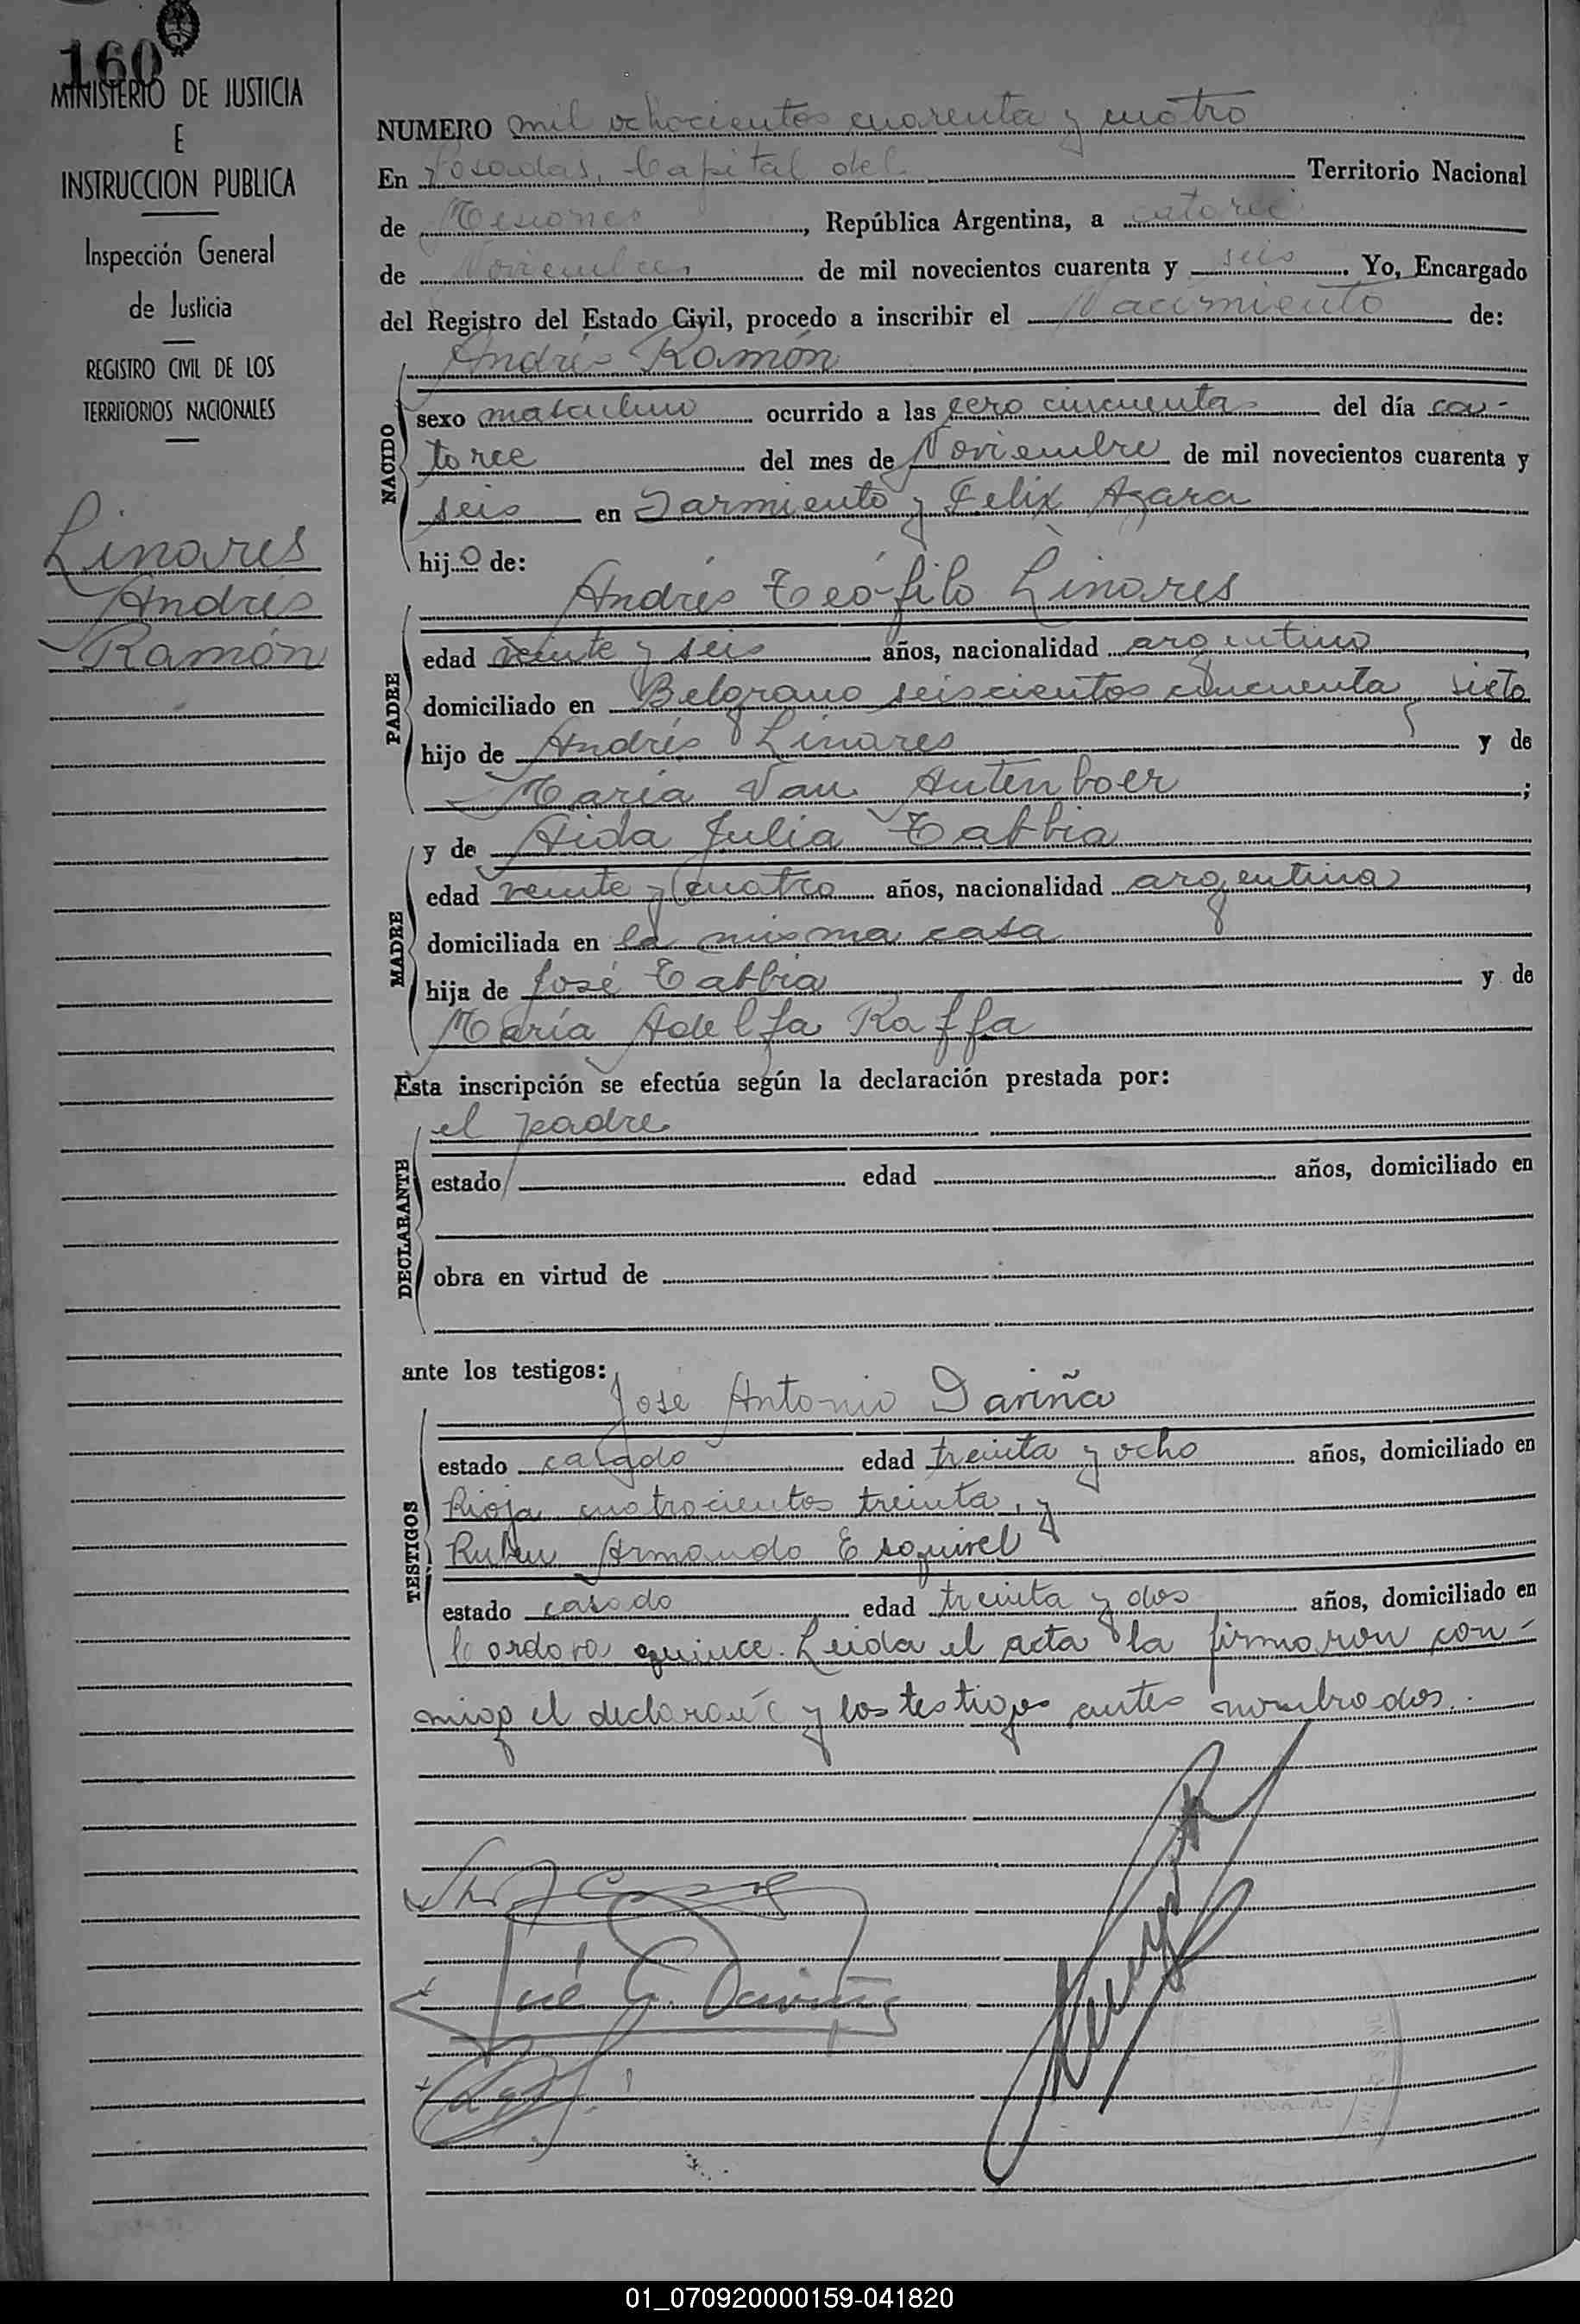 160
MINISTERIO DE JUSTICIA
E
INSTRUCCION PUBLICA
Inspección General
de Justicia
REGISTRO CIVIL DE LOS
TERRITORIOS NACIONALES
Linares
Andrés
Ramón
NUMERO mil ochocientos cuarenta y cuatro
En Posadas, Capital del Territorio Nacional
de Misiones, República Argentina, a catorce
de Noviembre de mil novecientos cuarenta y seis. Yo, Encargado
del Registro del Estado Civil, procedo a inscribir el Nacimiento de:
NACIDO
Andrés Ramón
sexo masculino ocurrido a las cero cincuenta del día ca-
torce del mes de Noviembre de mil novecientos cuarenta y
seis en Sarmiento y Felix Azara
hijo de:
PADRE
Andrés Teófilo Linares
edad veinte y seis años, nacionalidad argentino,
domiciliado en Belgrano seiscientos cincuenta y siete
hijo de Andrés Linares y de
María Van Autenboer;
MADRE
y de Aida Julia Tabbia
edad veinte y cuatro años, nacionalidad argentina,
domiciliada en la misma casa
hija de José Tabbia y de
María Adelfa Raffa
Esta inscripción se efectúa según la declaración prestada por:
DECLARANTE
el padre
estado edad años, domiciliado en
obra en virtud de
ante los testigos:
TESTIGOS
José Antonio Dariña
estado casado edad treinta y ocho años, domiciliado en
Rioja cuatrocientos treinta, y
Ruben Armando Esquivel
estado casado edad treinta y dos años, domiciliado en
Cordova quince. Leida el acta la firmaron con-
migo el declarante y los testigos antes nombrados.
01_070920000159-041820